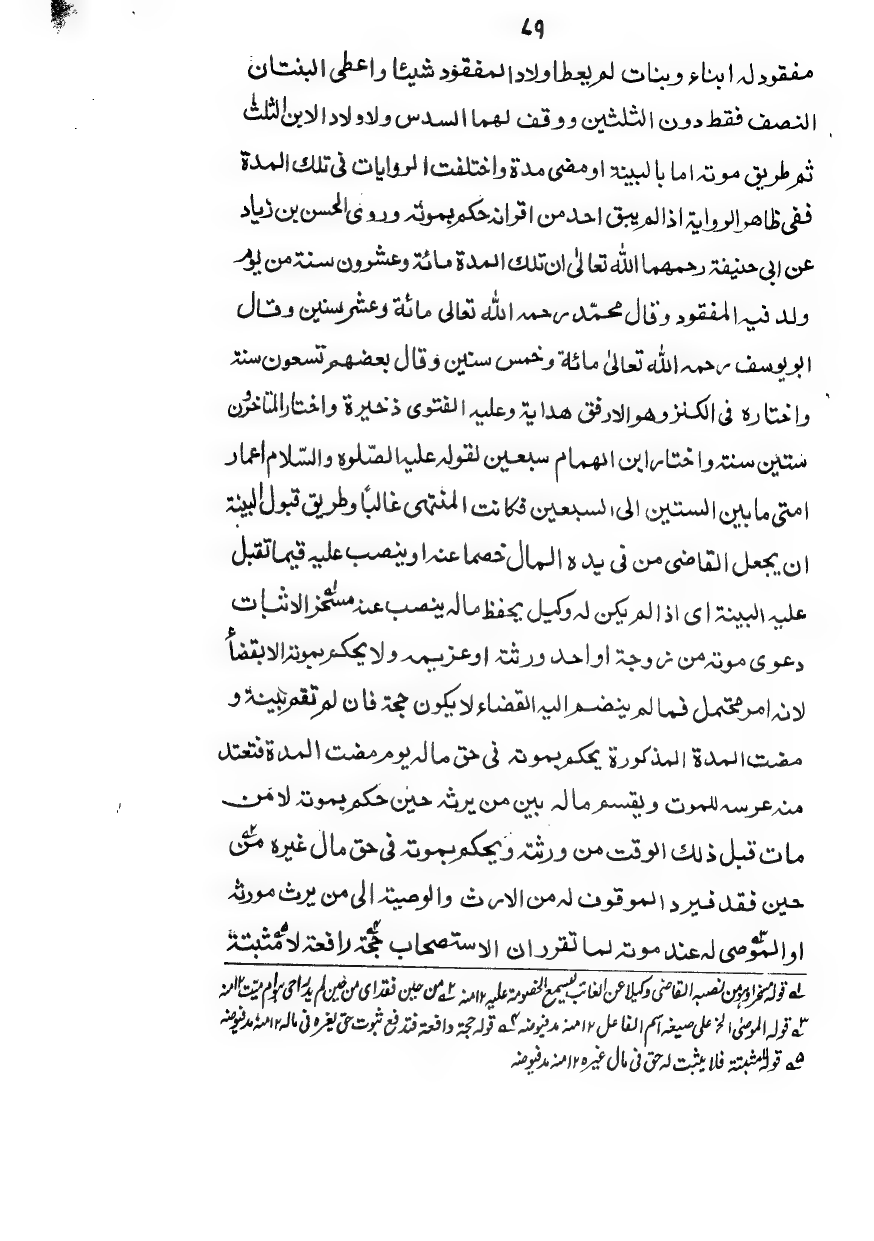 ٨٩
مفقود له ابناء وبنات لم يعطا ولاد المفقود شيئا واعطى البنتان
النصف فقط دون الثلثين ووقف لهما السدس ولاولاد الابن الثلث
ثم طريق موته اما بالبينة اومضى مدة واختلفت الروايات فى تلك المدة
ففى ظاهر الرواية اذا لم يبق احد من اقرانه حكم بموته وروى الحسن بن زياد
عن ابى حنيفة رحمهما الله تعالىٰ ان تلك المدة مائة وعشرون سنة من يوم
ولد فيه المفقود وقال محمد رحمه الله تعالى مائة وعشر سنين وقال
ابو يوسف رحمه الله تعالىٰ مائة وخمس سنين وقال بعضهم تسعون سنة
واختاره فى الكنز وهو الارفق هداية وعليه الفتوى ذخيرة واختار المتاخرون
ستين سنة واختار ابن الهمام سبعين لقوله عليه الصلوة والسلام اعمار
امتى ما بين الستين الى السبعين فكانت المنتهى غالبا وطريق قبول البينة
ان يجعل القاضى من فى يده المال خصما عنه او ينصب عليه قيما تقبل
عليه البينة اى اذا لم يكن له وكيل يحفظ ماله ينصب عنه مسخرا لاثبات
دعوى موته من زوجة او احد ورثته او غريمه ولا يحكم بموته الا بقضاء
لانه امر محتمل فما لم ينضم اليه القضاء لا يكون حجة فان لم تقم بينة و
مضت المدة المذكورة يحكم بموته فى حق ماله يوم مضت المدة فتعتد
منه عرسه للموت ويقسم ماله بين من يرثه حين حكم بموته لا من
مات قبل ذلك الوقت من ورثته ويحكم بموته فى حق مال غيره من٢
حين فقد فيرد الموقوف له من الارث والوصية الى من يرث مورثه
او الموصى٣ له عند موته لما تقرر ان الاستصحاب حجة٤ دافعة لا مثبتة٥
١ قوله مسخرا هو من نصبه القاضى وكيلا عن الغائب ليسمع الخصومة عليه ١٢ منه ٢ من حين فقد اى من حين لم يدر احى هو ام ميت ١٢ منه
٣ قوله الموصى الخ على صيغة اسم الفاعل ١٢ منه مد فيوضه ٤ قوله حجة دافعة فتدفع ثبوت حق لغيره فى ماله ١٢ منه مد فيوضه
٥ قوله لا مثبتة فلا يثبت له حق فى مال غيره ١٢ منه مد فيوضه